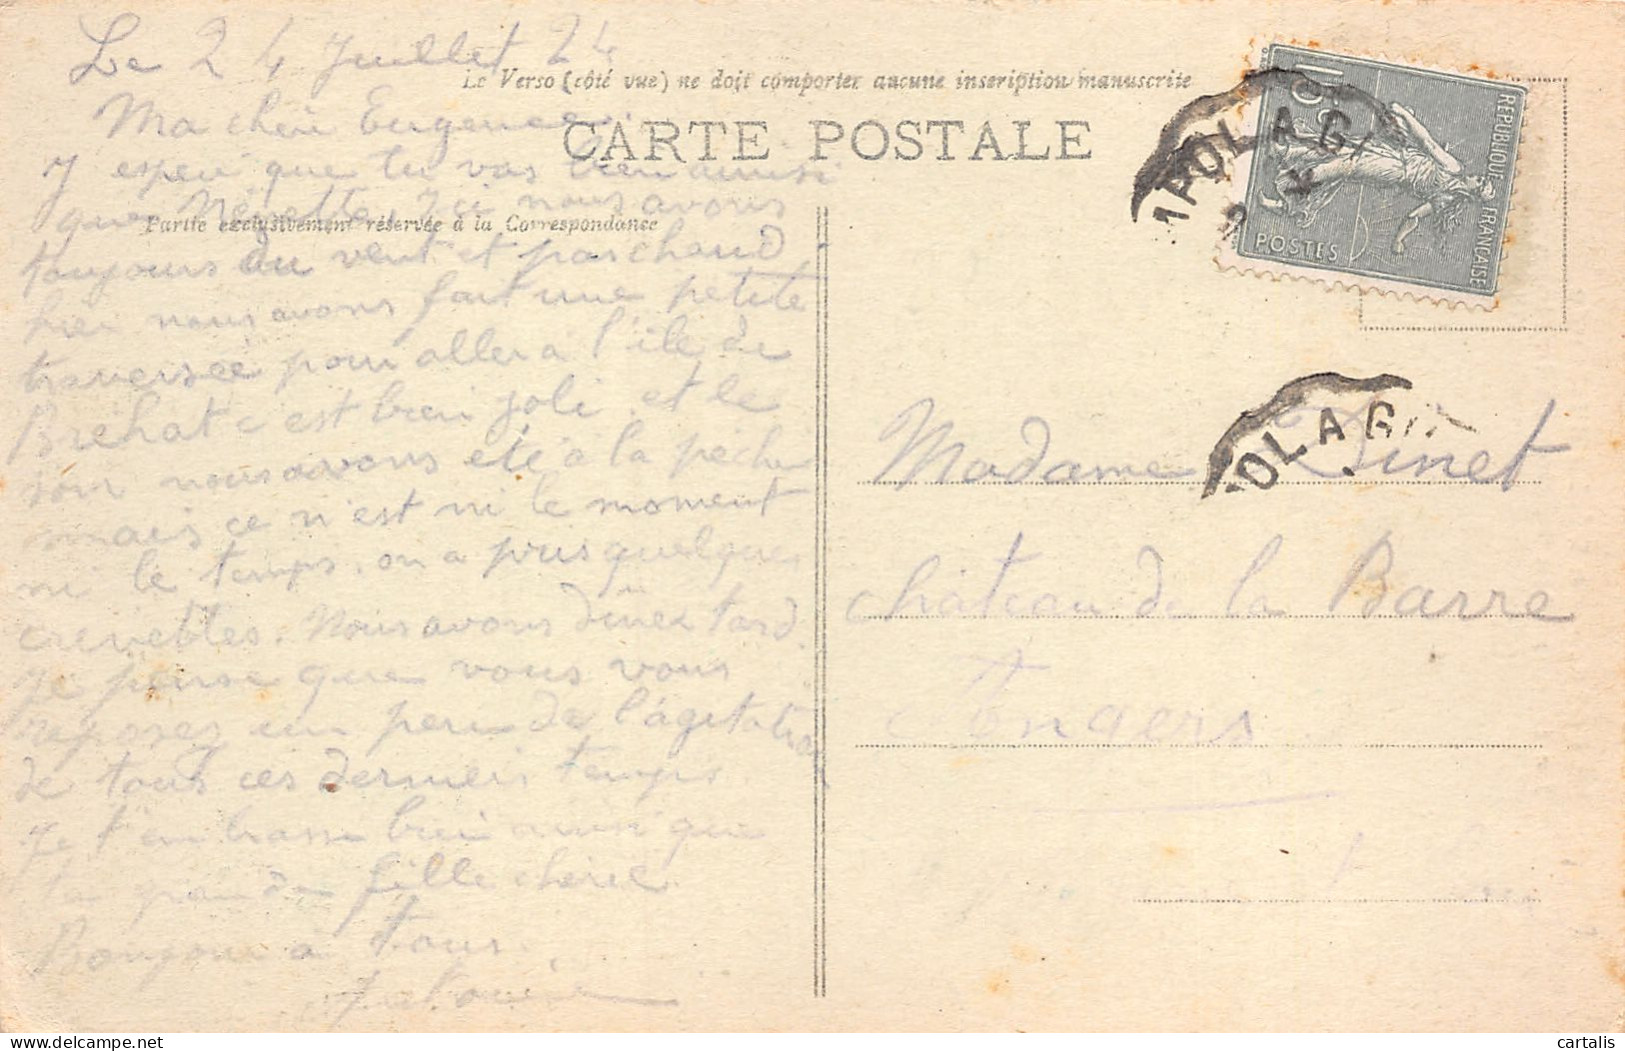 Le 24 Juillet 24
Le Verso (côté vue) ne doit comporter aucune inscription manuscrite
Ma cheri Eugenee
CARTE POSTALE
J espere que tu vas bien ainsi
que Nénette. Ici nous avons
Partie exclusivement réservée à la Correspondance
toujours du vent et pas chaud
hier nous avons fait une petite
traversée pour aller a l'ile de
Brehat c'est bien joli et le
soir nous avons été à la pêche
mais ce n'est ni le moment
ni le temps. on a pris quelques
crevettes. Nous avons dinez tard.
Je pense que vous vous
reposez un peu de l'agitation
de tous ces derniers temps
Je t'embrasse bien ainsi que
ta grande fille cherie
Bonjour à tous.
10c
REPUBLIQUE FRANÇAISE
POSTES
MPOL A G
OL A G
Madame Dinet
Château de la Barre
Angers
cartalis
delcampe.net